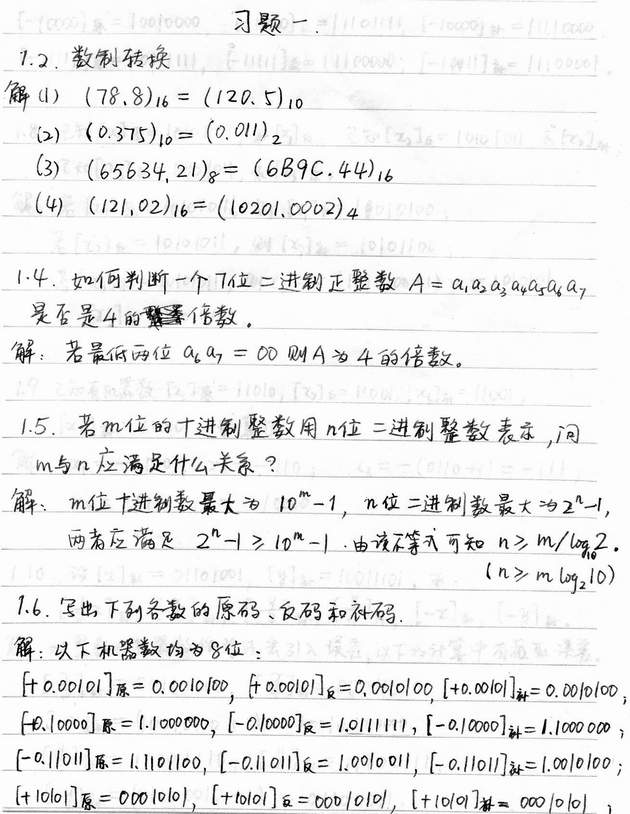 习题一.
1.2. 数制转换
解 (1) (78.8)₁₆ = (120.5)₁₀
(2) (0.375)₁₀ = (0.011)₂
(3) (65634.21)₈ = (6B9C.44)₁₆
(4) (121.02)₁₆ = (10201.0002)₄
1.4. 如何判断一个7位二进制正整数 A = a₁a₂a₃a₄a₅a₆a₇
是否是4的倍数。
解: 若最低两位 a₆a₇ = 00 则A为4的倍数。
1.5. 若m位的十进制整数用n位二进制整数表示,问
m与n应满足什么关系?
解: m位十进制数最大为 10ᵐ-1, n位二进制数最大为2ⁿ-1,
两者应满足 2ⁿ-1 ≥ 10ᵐ-1. 由该不等式可知 n ≥ m/log₁₀2.
(n ≥ m log₂10)
1.6. 写出下列各数的原码、反码和补码.
解: 以下机器数均为8位:
[+0.00101]原 = 0.0010100, [+0.00101]反 = 0.0010100, [+0.00101]补 = 0.0010100;
[-0.10000]原 = 1.1000000, [-0.10000]反 = 1.0111111, [-0.10000]补 = 1.1000000;
[-0.11011]原 = 1.1101100, [-0.11011]反 = 1.0010011, [-0.11011]补 = 1.0010100;
[+10101]原 = 00010101, [+10101]反 = 00010101, [+10101]补 = 00010101;